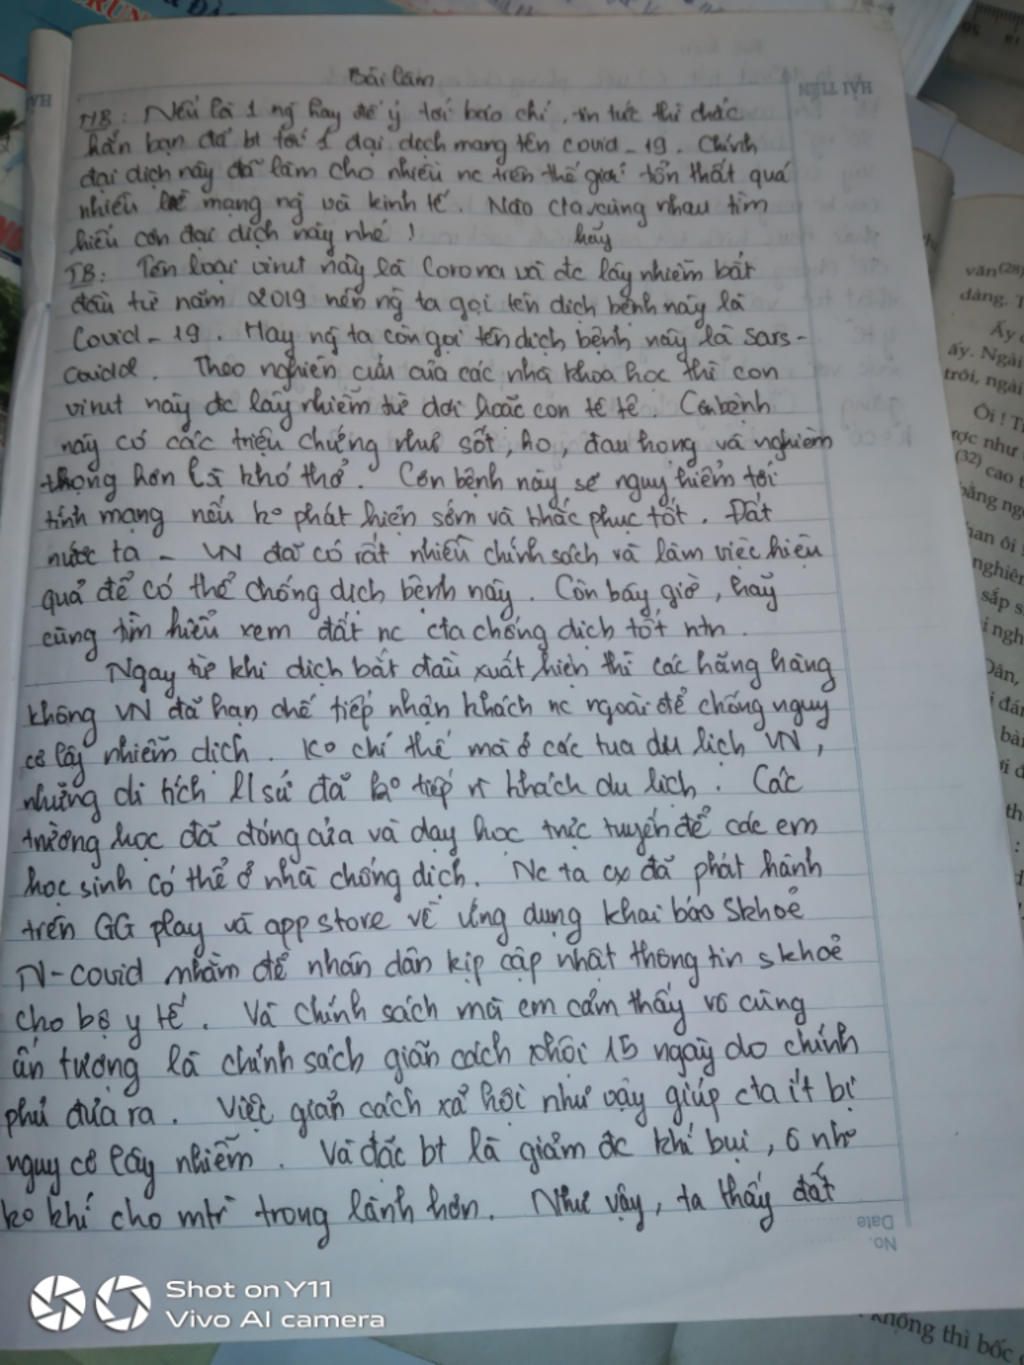 Bài làm
MB: Nếu là 1 ng hay để ý tới báo chí, tin tức thì chắc
hẳn bạn đã bt tới 1 đại dịch mang tên covid-19. Chính
đại dịch này đã làm cho nhiều nc trên thế giới tổn thất quá
nhiều về mạng ng và kinh tế. Nào cta cùng nhau tìm
hiểu cơn đại dịch này nhé! hãy
TB: Tên loại virut này là Corona và đc lây nhiễm bắt
đầu từ năm 2019 nên ng ta gọi tên dịch bệnh này là
Covid-19. Hay ng ta còn gọi tên dịch bệnh này là Sars-
Theo nghiên cứu của các nhà khoa học thì con
virut này đc lây nhiễm từ dơi hoặc con tê tê. Cơn bệnh
này có các triệu chứng như sốt, ho, đau họng và nghiêm
trọng hơn là khó thở. Cơn bệnh này sẽ nguy hiểm tới
tính mạng nếu ko phát hiện sớm và khắc phục tốt. Đất
nước ta - VN đã có rất nhiều chính sách và làm việc hiệu
quả để có thể chống dịch bệnh này. Còn bây giờ, hãy
cùng tìm hiểu xem đất nc cta chống dịch tốt ntn.
Ngay từ khi dịch bắt đầu xuất hiện thì các hãng hàng
không VN đã hạn chế tiếp nhận khách nc ngoài để chống nguy
cơ lây nhiễm dịch. Ko chỉ thế mà ở các tua du lịch VN,
những di tích lsử đã ko tiếp khách du lịch. Các
trường học đã đóng cửa và dạy học trực tuyến để các em
học sinh có thể ở nhà chống dịch. Nc ta cx đã phát hành
trên GG play và app store về ứng dụng khai báo skhoẻ
N-covid nhằm để nhân dân kịp cập nhật thông tin skhoẻ
cho bộ y tế. Và chính sách mà em cảm thấy vô cùng
ấn tượng là chính sách giãn cách xhội 15 ngày do chính
phủ đưa ra. Việc giãn cách xã hội như vậy giúp cta ít bị
nguy cơ lây nhiễm. Và đặc bt là giảm đc khí bụi, ô nh
ko khí cho mtr trong lành hơn. Như vậy, ta thấy đất
HẢI TIẾN
No.
Date
Shot on Y11
Vivo AI camera
văn (28)
dàng. T
Ấy
ấy. Ngài
trôi, ngài
Ôi! T
ợc như
(32) cao t
bằng ng
han ôi
nghiên
sắp s
i ngh
Dân,
i đá
không thì bốc